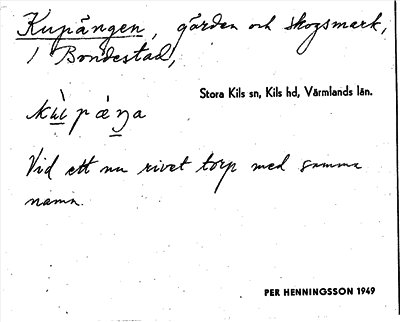 Kupängen, gärden och skogsmark,
i Bondestad,
Stora Kils sn, Kils hd, Värmlands län.
Vid ett nu rivet torp med samma
namn.
PER HENNINGSSON 1949